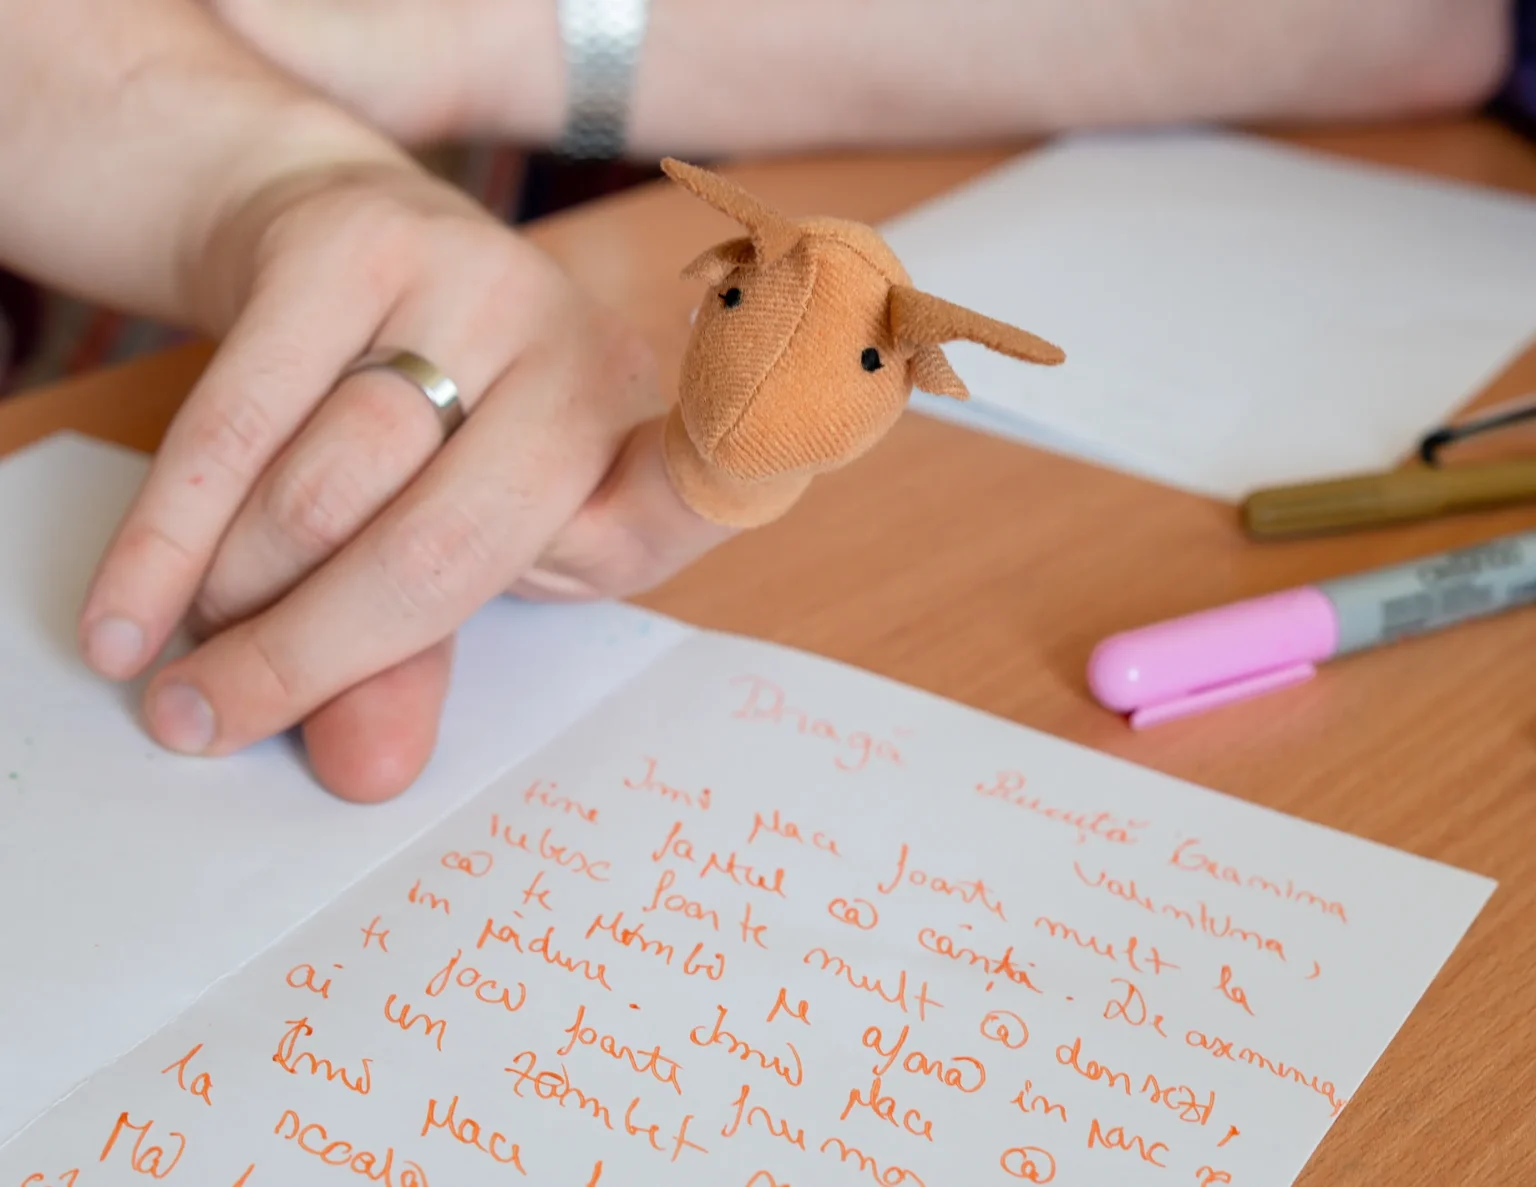 Dragă Rucuță Geanina Valentina,
Imi place foarte mult la
tine faptul că cânți. De asemenea,
iubesc foarte mult că dansezi,
că te plimbi pe afară in parc și
in pădure. Imi place că
te joci foarte frumos
ai un zâmbet
Imi place
la școală
Mă